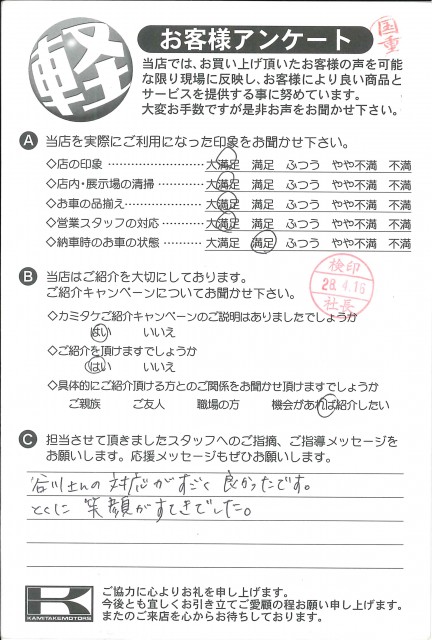 軽
お客様アンケート
国重
当店では、お買い上げ頂いたお客様の声を可能
な限り現場に反映し、お客様により良い商品と
サービスを提供する事に努めています。
大変お手数ですが是非お声をお聞かせ下さい。
A 当店を実際にご利用になった印象をお聞かせ下さい。
◇店の印象 ……………………… 大満足 満足 ふつう やや不満 不満
◇店内・展示場の清掃 ………… 大満足 満足 ふつう やや不満 不満
◇お車の品揃え ………………… 大満足 満足 ふつう やや不満 不満
◇営業スタッフの対応 ………… 大満足 満足 ふつう やや不満 不満
◇納車時のお車の状態 ………… 大満足 満足 ふつう やや不満 不満
B 当店はご紹介を大切にしております。
ご紹介キャンペーンについてお聞かせ下さい。
検印
28.4.16
社長
◇カミタケご紹介キャンペーンのご説明はありましたでしょうか
はい いいえ
◇ご紹介を頂けますでしょうか
はい いいえ
◇具体的にご紹介頂ける方とのご関係をお聞かせ頂けますでしょうか
ご親族 ご友人 職場の方 機会があれば紹介したい
C 担当させて頂きましたスタッフへのご指摘、ご指導メッセージを
お願いします。応援メッセージもぜひお願いします。
谷川さんの対応がすごく良かったです。
とくに笑顔がすてきでした。
K
KAMITAKE MOTORS
ご協力に心よりお礼を申し上げます。
今後とも宜しくお引き立てご愛顧の程お願い申し上げます。
またのご来店を心からお待ちしております。